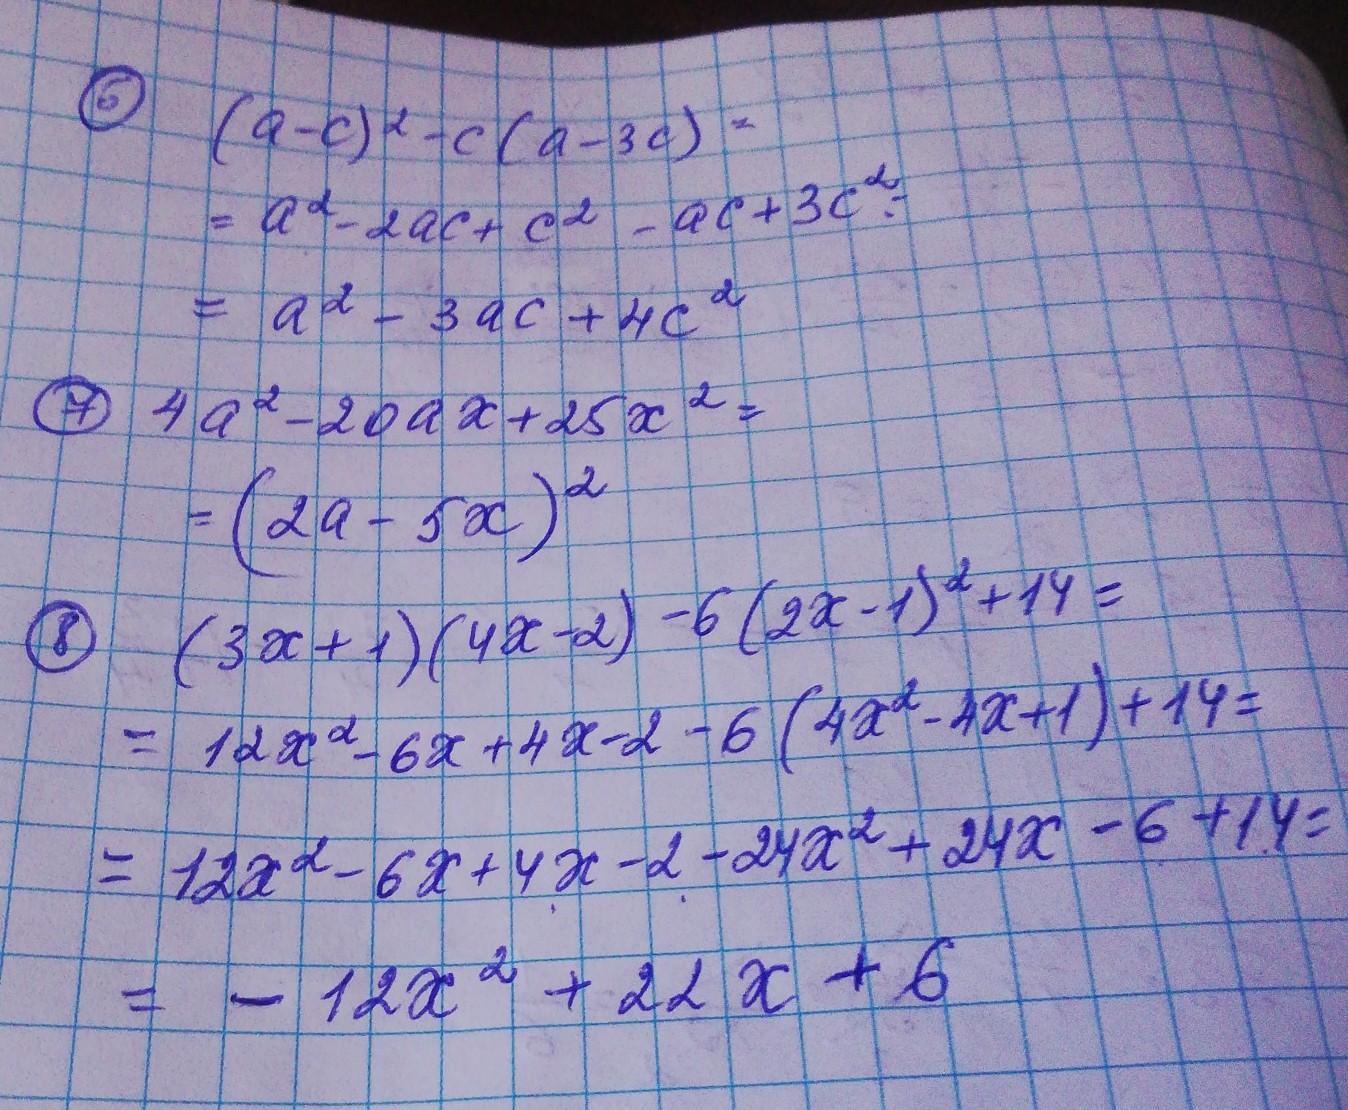 6 (a-c)² - c(a-3c) =
= a² - 2ac + c² - ac + 3c² =
= a² - 3ac + 4c²
7 4a² - 20ax + 25x² =
= (2a - 5x)²
8 (3x+1)(4x-2) - 6(2x-1)² + 14 =
= 12x² - 6x + 4x - 2 - 6(4x² - 4x + 1) + 14 =
= 12x² - 6x + 4x - 2 - 24x² + 24x - 6 + 14 =
= - 12x² + 22x + 6